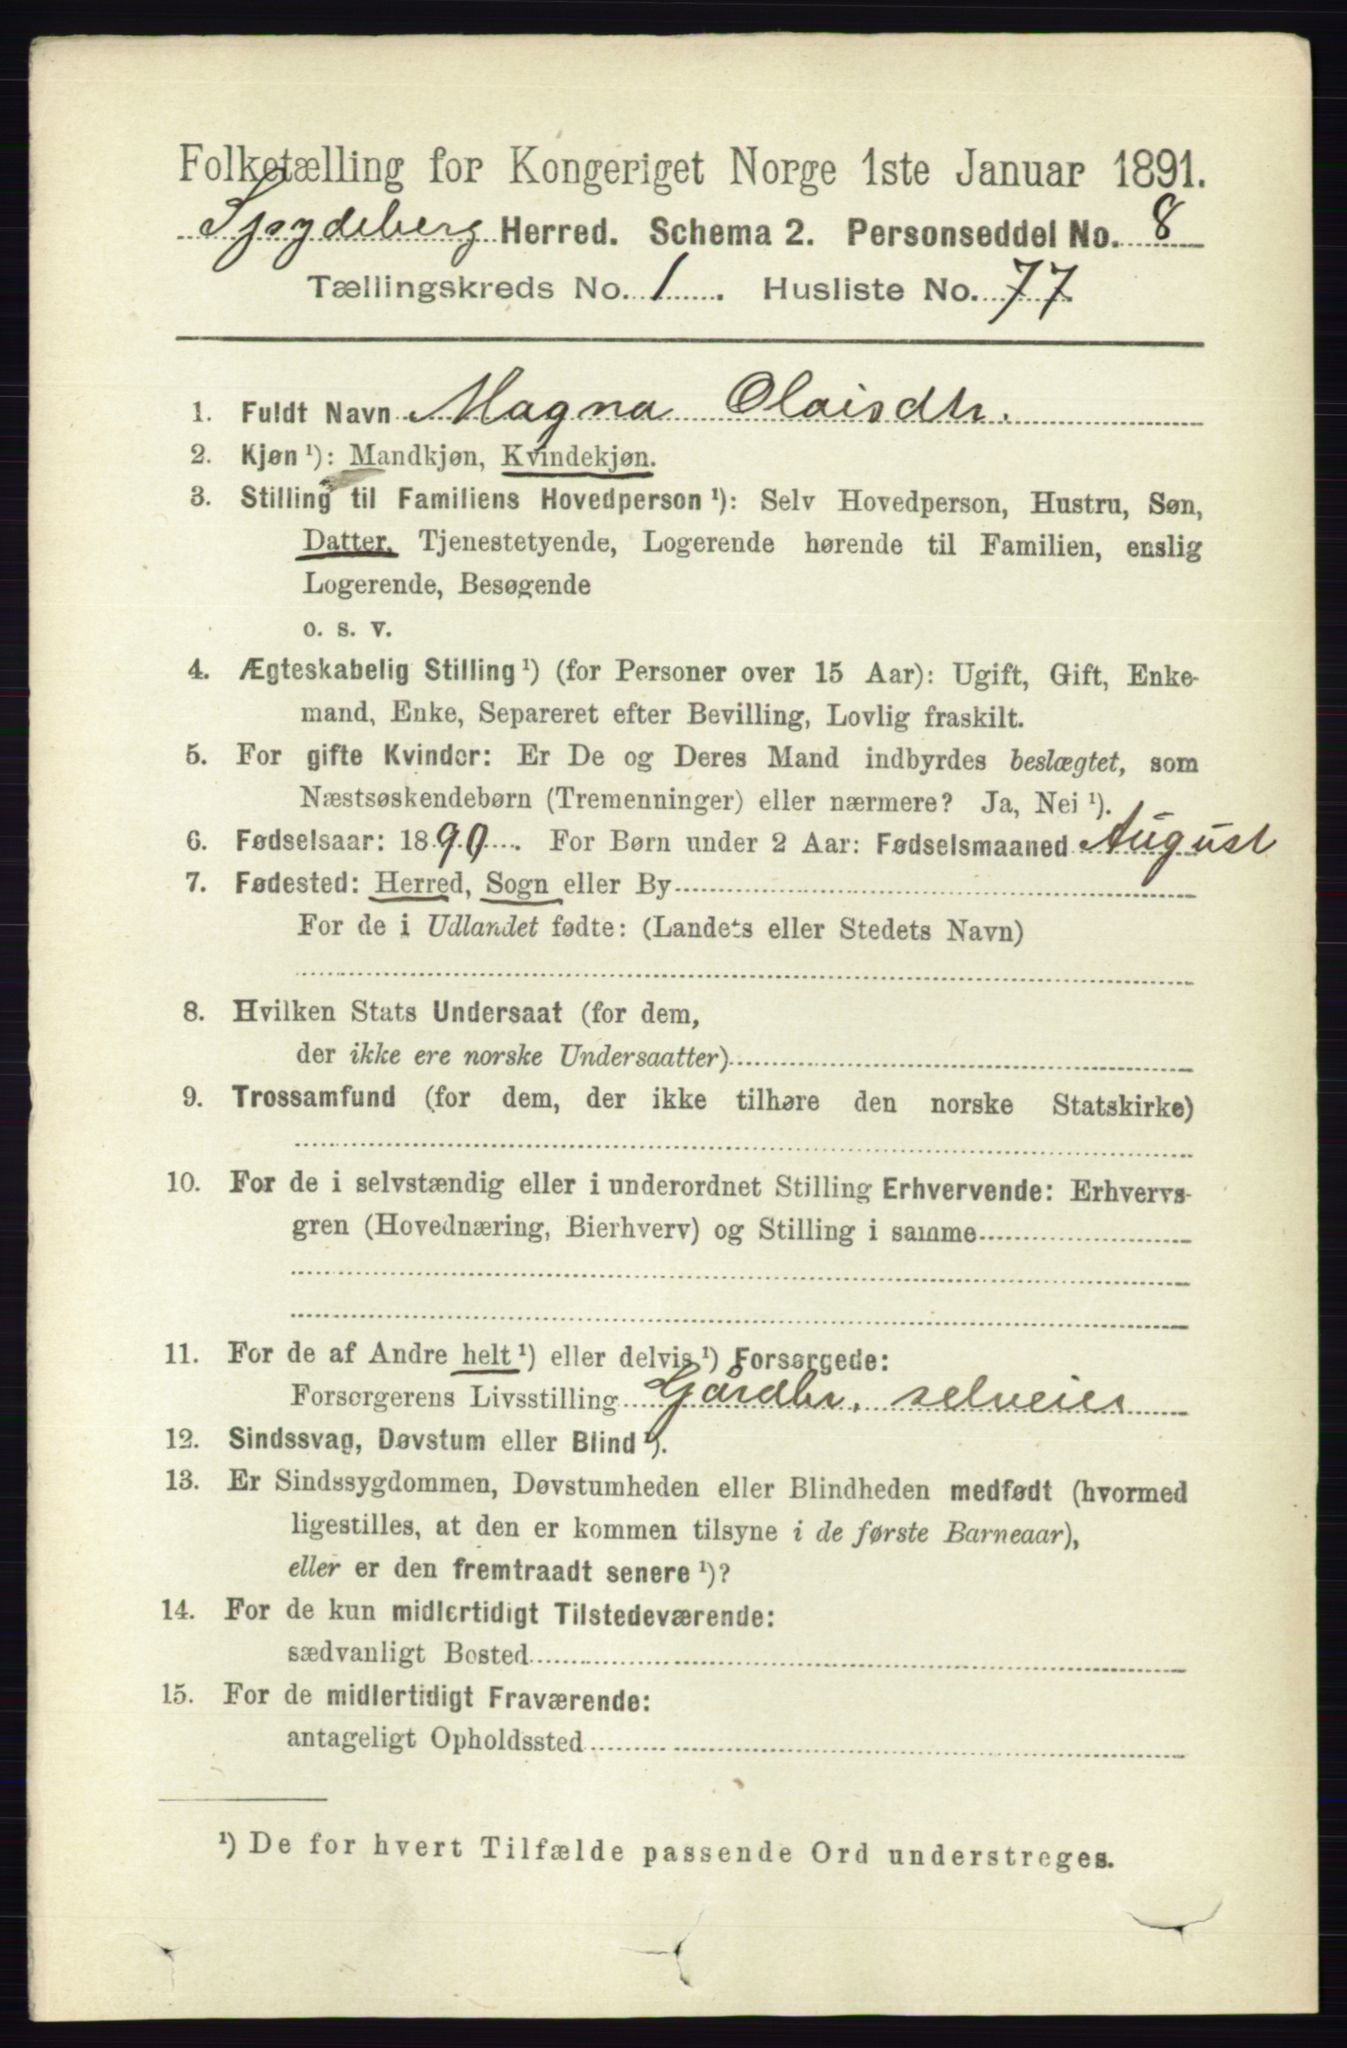 Folketælling for Kongeriget Norge 1ste Januar 1891.
Spydeberg Herred. Schema 2. Personseddel No. 8
Tællingskreds No. 1. Husliste No. 77
1. Fuldt Navn Magna Olaisdtr.
2. Kjøn ¹): Mandkjøn, Kvindekjøn.
3. Stilling til Familiens Hovedperson ¹): Selv Hovedperson, Hustru, Søn,
Datter, Tjenestetyende, Logerende hørende til Familien, enslig
Logerende, Besøgende
o. s. v.
4. Ægteskabelig Stilling ¹) (for Personer over 15 Aar): Ugift, Gift, Enke-
mand, Enke, Separeret efter Bevilling, Lovlig fraskilt.
5. For gifte Kvinder: Er De og Deres Mand indbyrdes beslægtet, som
Næstsøskendebørn (Tremenninger) eller nærmere? Ja, Nei ¹).
6. Fødselsaar: 1890. For Børn under 2 Aar: Fødselsmaaned August
7. Fødested: Herred, Sogn eller By
For de i Udlandet fødte: (Landets eller Stedets Navn)
8. Hvilken Stats Undersaat (for dem,
der ikke ere norske Undersaatter)
9. Trossamfund (for dem, der ikke tilhøre den norske Statskirke)
10. For de i selvstændig eller i underordnet Stilling Erhvervende: Erhvervs-
gren (Hovednæring, Bierhverv) og Stilling i samme
11. For de af Andre helt ¹) eller delvis ¹) Forsørgede:
Forsørgerens Livsstilling Gårdbr. selveier
12. Sindssvag, Døvstum eller Blind ¹).
13. Er Sindssygdommen, Døvstumheden eller Blindheden medfødt (hvormed
ligestilles, at den er kommen tilsyne i de første Barneaar),
eller er den fremtraadt senere ¹)?
14. For de kun midlertidigt Tilstedeværende:
sædvanligt Bosted
15. For de midlertidigt Fraværende:
antageligt Opholdssted
¹) De for hvert Tilfælde passende Ord understreges.